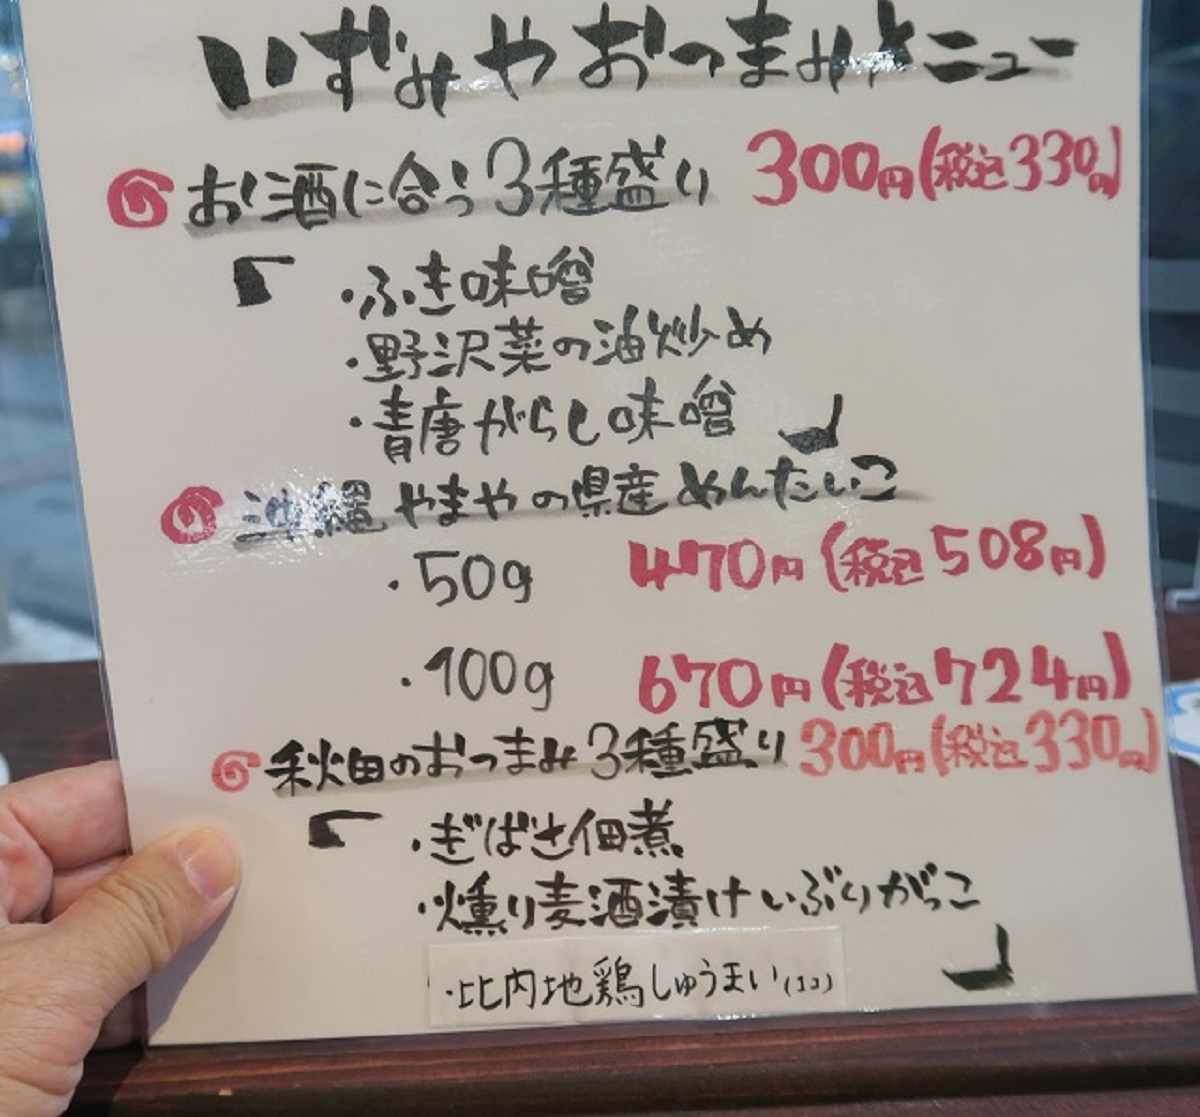 いずみやおつまみメニュー
お酒に合う3種盛り 300円(税込330円)
「 ・ふき味噌
・野沢菜の油炒め
・青唐がらし味噌 」
沖縄やまやの県産めんたいこ
・50g 470円(税込508円)
・100g 670円(税込724円)
秋田のおつまみ3種盛り 300円(税込330円)
「 ・ぎばさ佃煮
・燻り麦酒漬けいぶりがっこ
・比内地鶏しゅうまい(1コ) 」